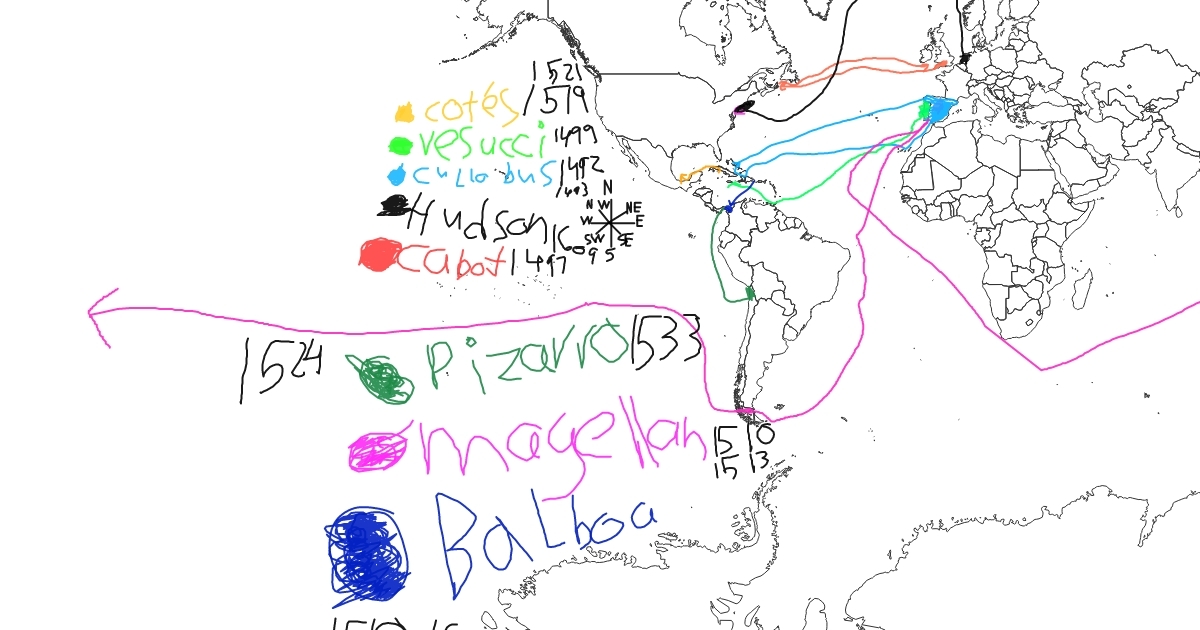 1521
cotés 1519
vesucci 1499
cullo bus 1492
1493
Hudson 1609
Cabot 1497
N
NW NE
W E
SW SE
S
1524 Pizarro 1533
magellan 1510
1513
Balboa